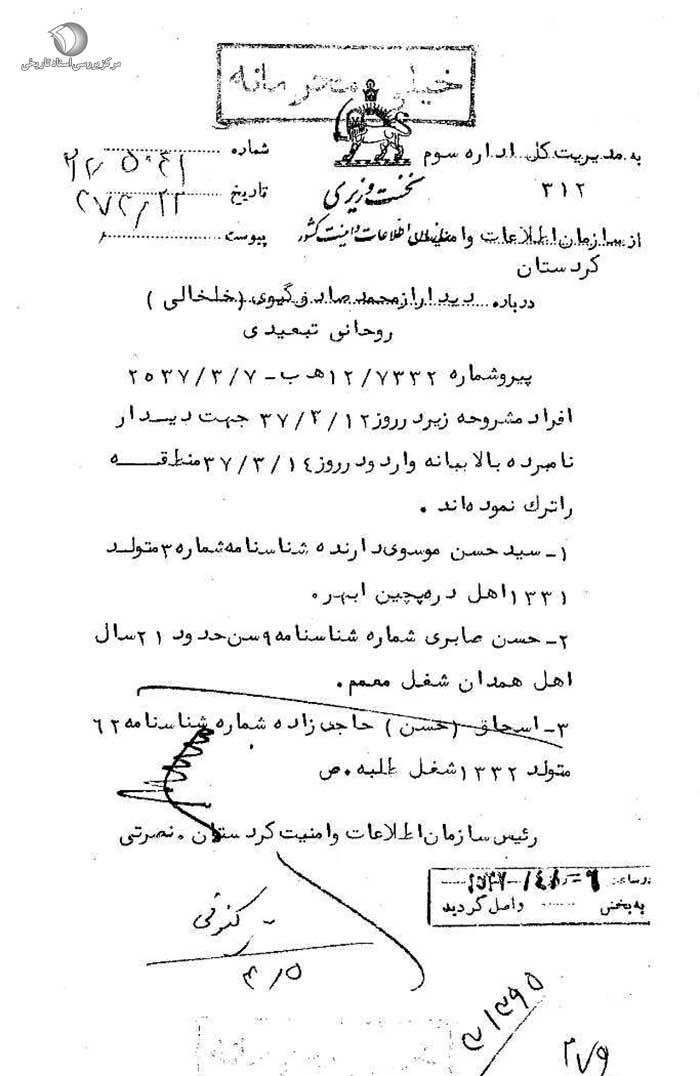 مرکز بررسی اسناد تاریخی
خیلی محرمانه
به مدیریت کل اداره سوم
۳۱۲
نخست وزیری
سازمان اطلاعات و امنیت کشور
از سازمان اطلاعات و امنیت
کردستان
شماره
تاریخ
پیوست
درباره دیدار از محمد صادق گیوی (خلخالی)
روحانی تبعیدی
پیرو شماره ۱۲/۷۳۳۲ هـ ب - ۲۵۳۷/۳/۷
افراد مشروحه زیر در روز ۳۷/۳/۱۲ جهت دیدار
نامبرده بالا ببانه وارد و در روز ۳۷/۳/۱٤ منطقه
را ترک نموده‌اند .
۱- سید حسن موسوی دارنده شناسنامه شماره ۳ متولد
۱۳۳۱ اهل دره‌پچین ابهر .
۲- حسن صابری شماره شناسنامه ۹ سن حدود ۲۱ سال
اهل همدان شغل معمم .
۳- اسحاق (حسن) حاجی زاده شماره شناسنامه ٦۲
متولد ۱۳۳۲ شغل طلبه . ص
رئیس سازمان اطلاعات و امنیت کردستان . نصرتی
در ساعت
به بخش واصل گردید
۲۷۹